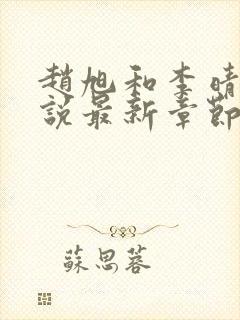 趙旭和李晴
說最新章節
蘇思蓉